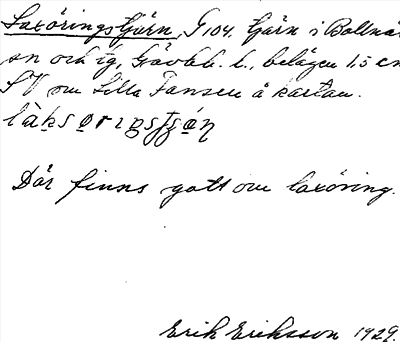 Laxöringstjärn, G 104. Tjärn i Bollnäs
sn och tg, Gävleb. l., belägen 1,5 cm
SV om Lilla Fansen å kartan.
Där finns gott om laxöring.
Erik Eriksson 1929.